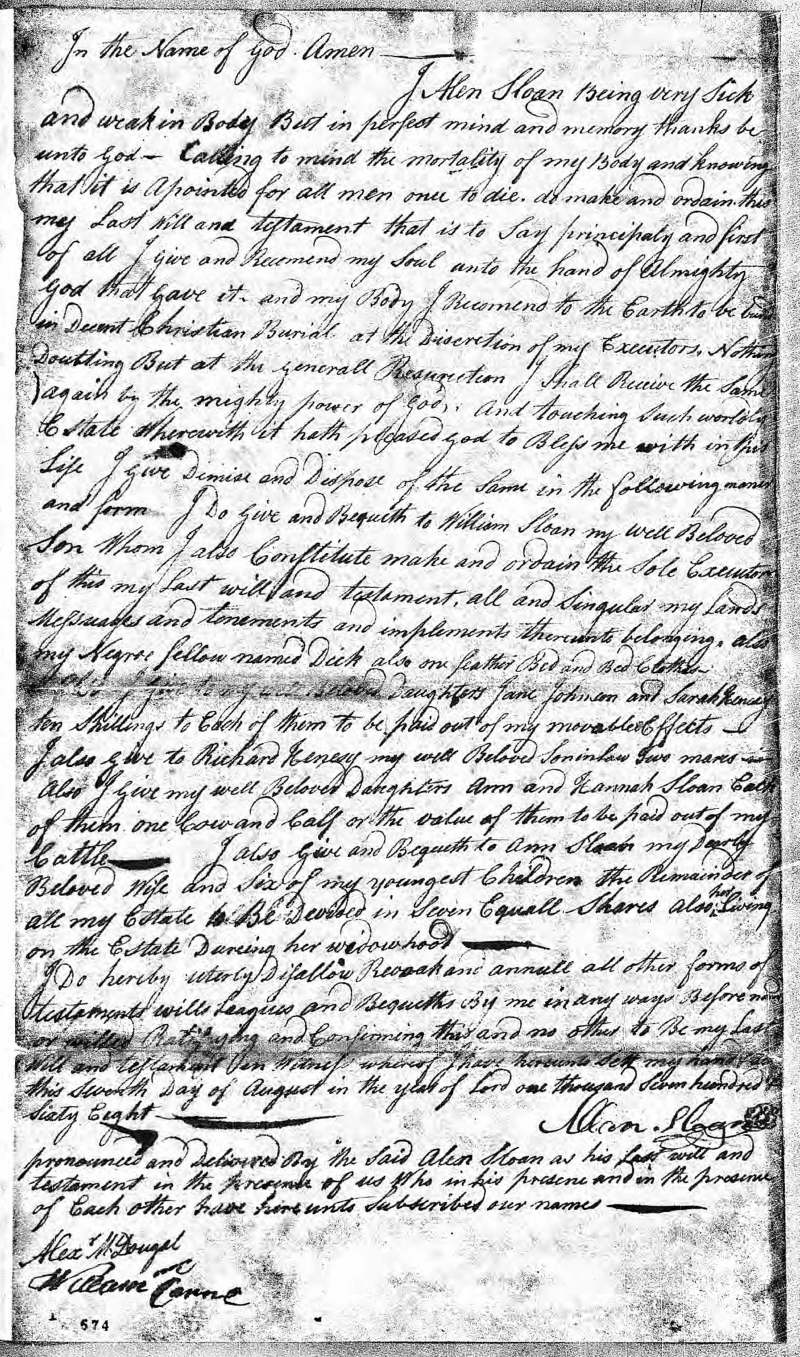 In the Name of God. Amen
I Alen Sloan Being very Sick
and weak in Body But in perfect mind and memory thanks be
unto God - Calling to mind the mortality of my Body and knowing
that it is Apointed for all men once to die. do make and ordain this
my Last Will and testament that is to Say principaly and first
of all I give and Recomend my Soul unto the hand of Almighty
God that Gave it - and my Body I Recomend to the Earth to be
in Decent Christian Burial at the Discretion of my Executors, Nothing
Doubting But at the generall Resurection I Shall Receive the Same
again by the mighty power of God; And touching Such worldly
Estate wherewith it hath pleased God to Bless me with in this
Life I Give Demise and Dispose of the Same in the following maner
and form I Do Give and Bequeth to William Sloan my well Beloved
Son Whom I also Constitute make and ordain the Sole Executor
of this my Last will and testament. all and Singular my Lands
Messuages and tenements and implements thereunto belonging, also
my Negroe fellow named Dick also one feather Bed and Bed Clothes
also I give to my well Beloved Daughters Jane Johnson and Sarah Henesy
ten Shillings to Each of them to be paid out of my movable Effects
I also give to Richard Henesy my well Beloved Soninlaw two mares
Also I Give my well Beloved Daughters Ann and Hannah Sloan Each
of them one Cow and Calf or the value of them to be paid out of my
Cattle I also Give and Bequeth to Ann Sloan my Dearly
Beloved Wife and Six of my youngest Children the Remainder of
all my Estate to Be Devided in Seven Equall Shares also her Living
on the Estate Dureing her widowhood
I Do hereby uterly Disallow Revoak and annull all other forms of
testaments wills Leagues and Bequeths By me in any ways Before
or willed Ratifying and Confirming this and no other to Be my Last
Will and testament In Witness whereof I have hereunto Sett my hand
this Seventh Day of August in the year of Lord one thousand Seven hundred &
Sixty Eight
Alen Sloan
pronounced and Delivered By the Said Alen Sloan as his Last will and
testament in the presence of us Who in his presene and in the presence
of Each other have hereunto Subscribed our names
Alexr McDougal
William
574